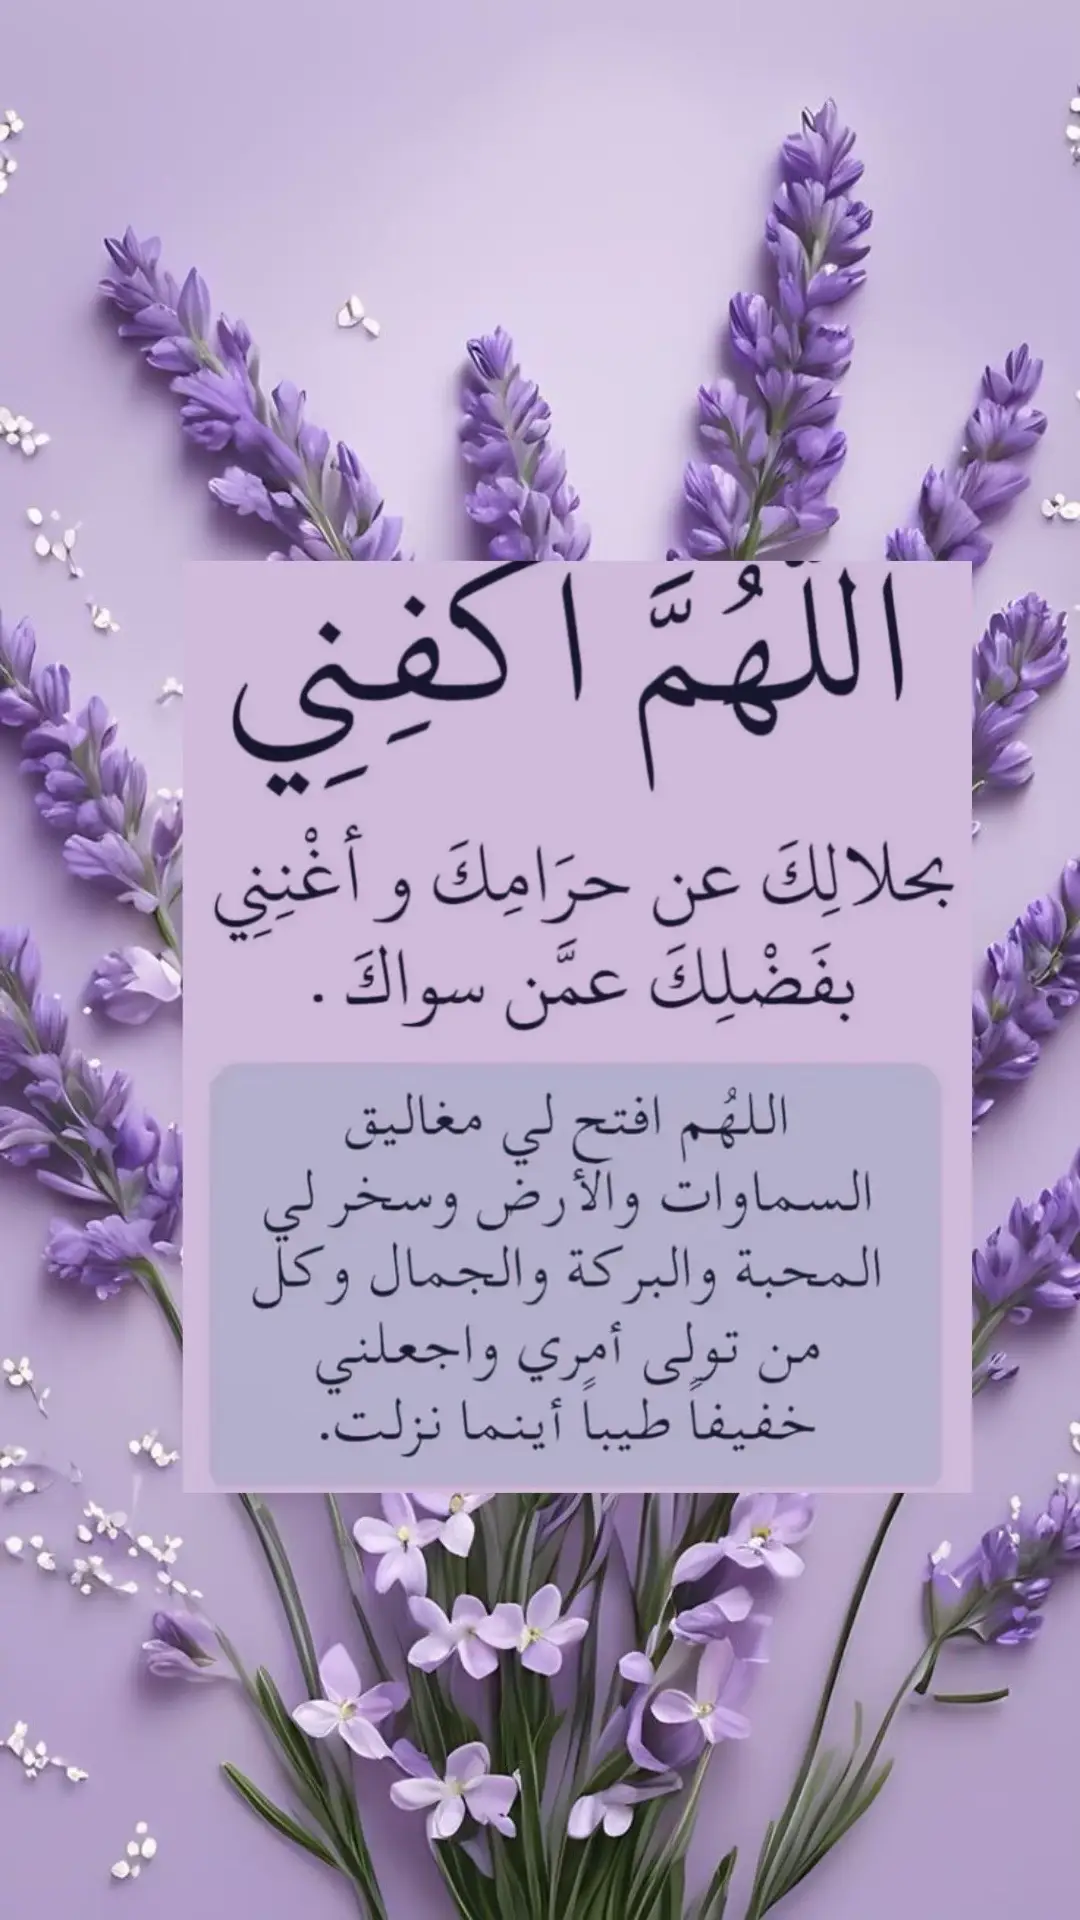 اللّهُمَّ اكفِنِي
بحلالِكَ عن حرَامِكَ و أغْنِنِي
بفَضْلِكَ عمَّن سواكَ .
اللهُم افتح لي مغاليق
السماوات والأرض وسخر لي
المحبة والبركة والجمال وكل
من تولى أمري واجعلني
خفيفاً طيباً أينما نزلت.